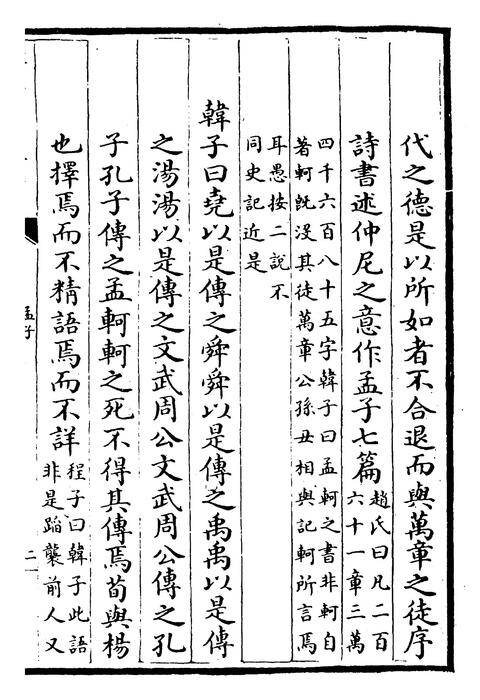 代之德是以所如者不合退而與萬章之徒序
詩書述仲尼之意作孟子七篇
趙氏曰凡二百
六十一章三萬
四千六百八十五字韓子曰孟軻之書非軻自
著軻旣没其徒萬章公孫丑相與記軻所言焉
耳愚按二說不
同史記近是
韓子曰堯以是傳之舜舜以是傳之禹禹以是傳
之湯湯以是傳之文武周公文武周公傳之孔
子孔子傳之孟軻軻之死不得其傳焉荀與楊
也擇焉而不精語焉而不詳
程子曰韓子此語
非是蹈襲前人又
孟子
二